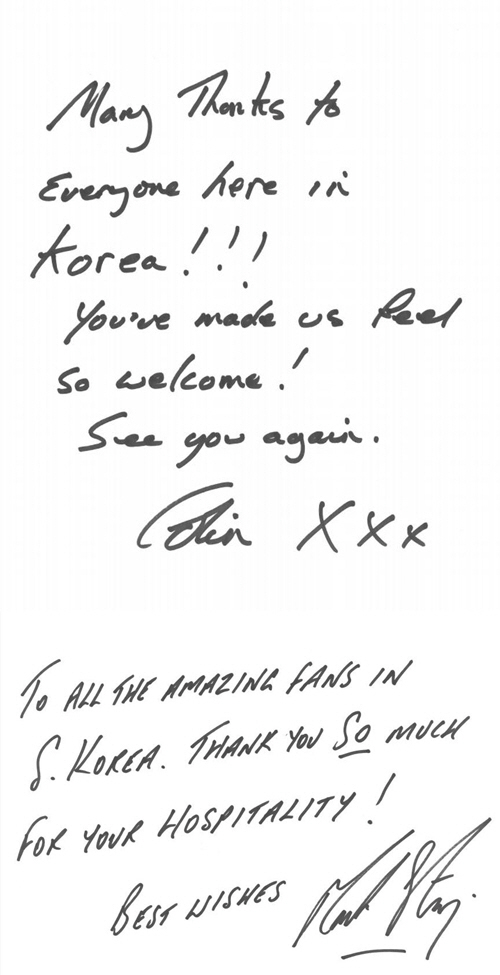 Many Thanks to
Everyone here in
Korea!!!
You've made us feel
so welcome!
See you again.
Colin XXx
To ALL THE AMAZING FANS IN
S. KOREA. THANK YOU SO MUCH
FOR YOUR HOSPITALITY!
BEST WISHES